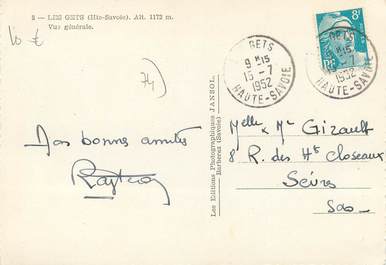 8 - LES GETS (Hte-Savoie). Alt. 1172 m.
Vue générale.
10 €
74)
GETS
9 H15
15 - 7
1952
HAUTE-SAVOIE
8F
GETS
1952
HAUTE-SAVOIE
Les Editions Photographiques JANSOL
Barberaz (Savoie)
Nos bonnes amitiés
Melle & Mr Girault
8 R. des Hts Closeaux
Sèvres
S&O